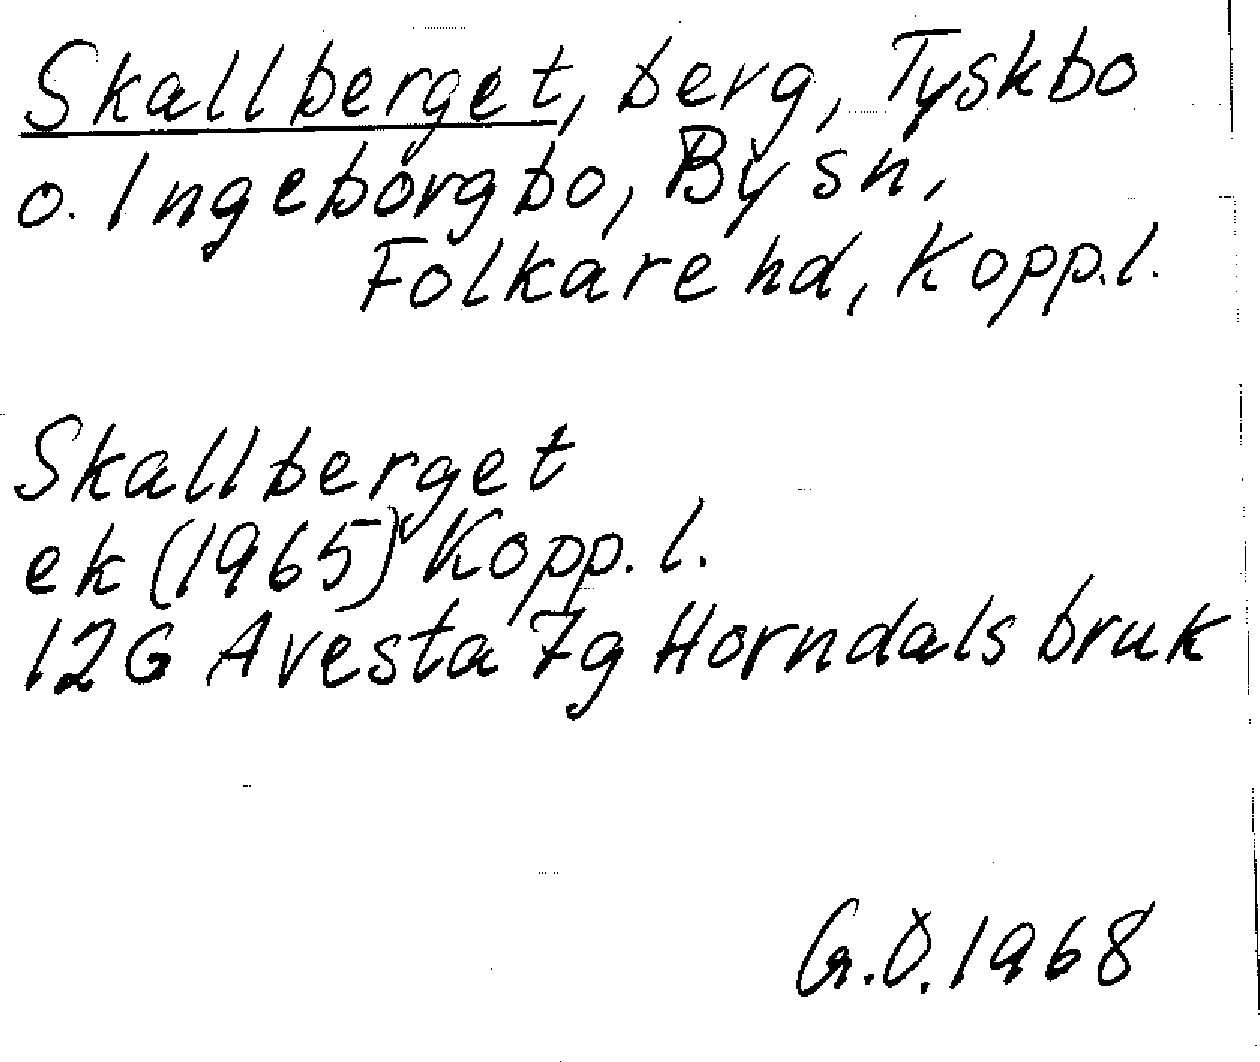 Skallberget, berg, Tyskbo
o. Ingeborgbo, By sn,
Folkare hd, Kopp.l.
Skallberget
ek (1965) Kopp. l.
12G Avesta 7g Horndals bruk
G.Ö. 1968